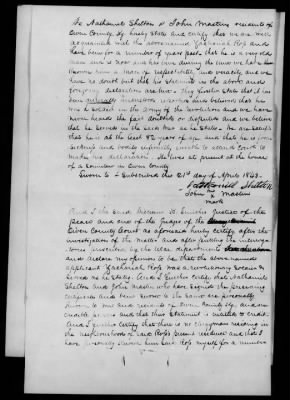 We Nathaniel Shelton & John Masters residents of
Owen County Ky hereby state and certify that we are well
acquainted with the above named Zachariah Ross and
have been for a number of years past, that he is a very old
man and is now and has been during the time we have
known him a man of respectability and veracity, and we
have no doubt but that his statements in the above and
foregoing declaration are true. They further state that it has
been currently understood and believed that he
was a soldier in the Army of the Revolution and we have
never heard the fact doubted or disputed and we believe
that he served in the said war as he states. We are satisfied
that he is at the least 82 years of age and that he is from
sickness and bodily infirmity unable to attend court to
make his declaration. He lives at present at the house
of a Counties in Owen County
Sworn to & Subscribed this 21st day of April 1843.
Nathaniel Shelton
John X Masters
mark
And I the said justice of the
Peace and one of the Judges of the
Owen County Court as aforesaid hereby certify after the
investigation of the matter and after putting the interroga-
tories prescribed by the War department
and declare my opinion to be that the above named
applicant Zachariah Ross was a revolutionary soldier &
served as he states. And I further certify that Nathaniel
Shelton and John Masters who have signed the preceding
certificate and been sworn to the same are personally
known to me and reside in Owen County Ky. and are
credible persons and that their statement is entitled to credit.
And I further certify that there is no clergyman residing in
the neighbourhood of said Ross's present residence and that I
have personally known him said Ross myself for a number